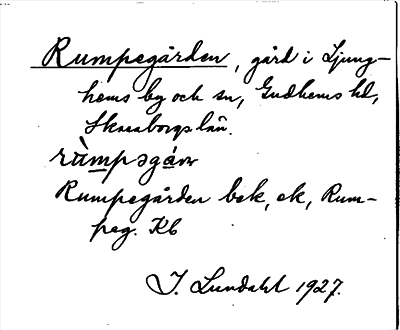 Rumpegården, gård i Ljung-
hems by och sn, Gudhems hd,
Skaraborgs län.
rùmpəgán
Rumpegården bek, ek, Rum-
peg. Kb
I. Lundahl 1927.